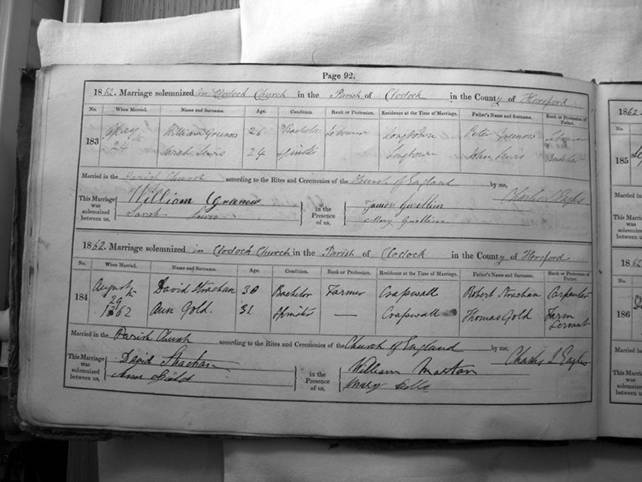 Page 92.
1862. Marriage solemnized in Clodock Church in the Parish of Clodock in the County of Hereford
No. When Married. Name and Surname. Age. Condition. Rank or Profession. Residence at the Time of Marriage. Father's Name and Surname. Rank or Profession of Father.
183 May William 26 Bachelor Labourer Longtown Peter
24 Sarah 24 Spinster Longtown John
Married in the Parish Church according to the Rites and Ceremonies of the Church of England by me,
This Marriage was solemnized between us, William
Sarah
in the Presence of us, James
Mary
1862. Marriage solemnized in Clodock Church in the Parish of Clodock in the County of Hereford
No. When Married. Name and Surname. Age. Condition. Rank or Profession. Residence at the Time of Marriage. Father's Name and Surname. Rank or Profession of Father.
184 August David Strachan 30 Bachelor Farmer Craswall Robert Strachan Carpenter
29 1862 Ann Gold. 31 Spinster — Craswall Thomas Gold Farm Servant
Married in the Parish Church according to the Rites and Ceremonies of the Church of England by me, Charles
This Marriage was solemnized between us, David Strachan
Ann
in the Presence of us, William
Mary
1862
185
1862
186